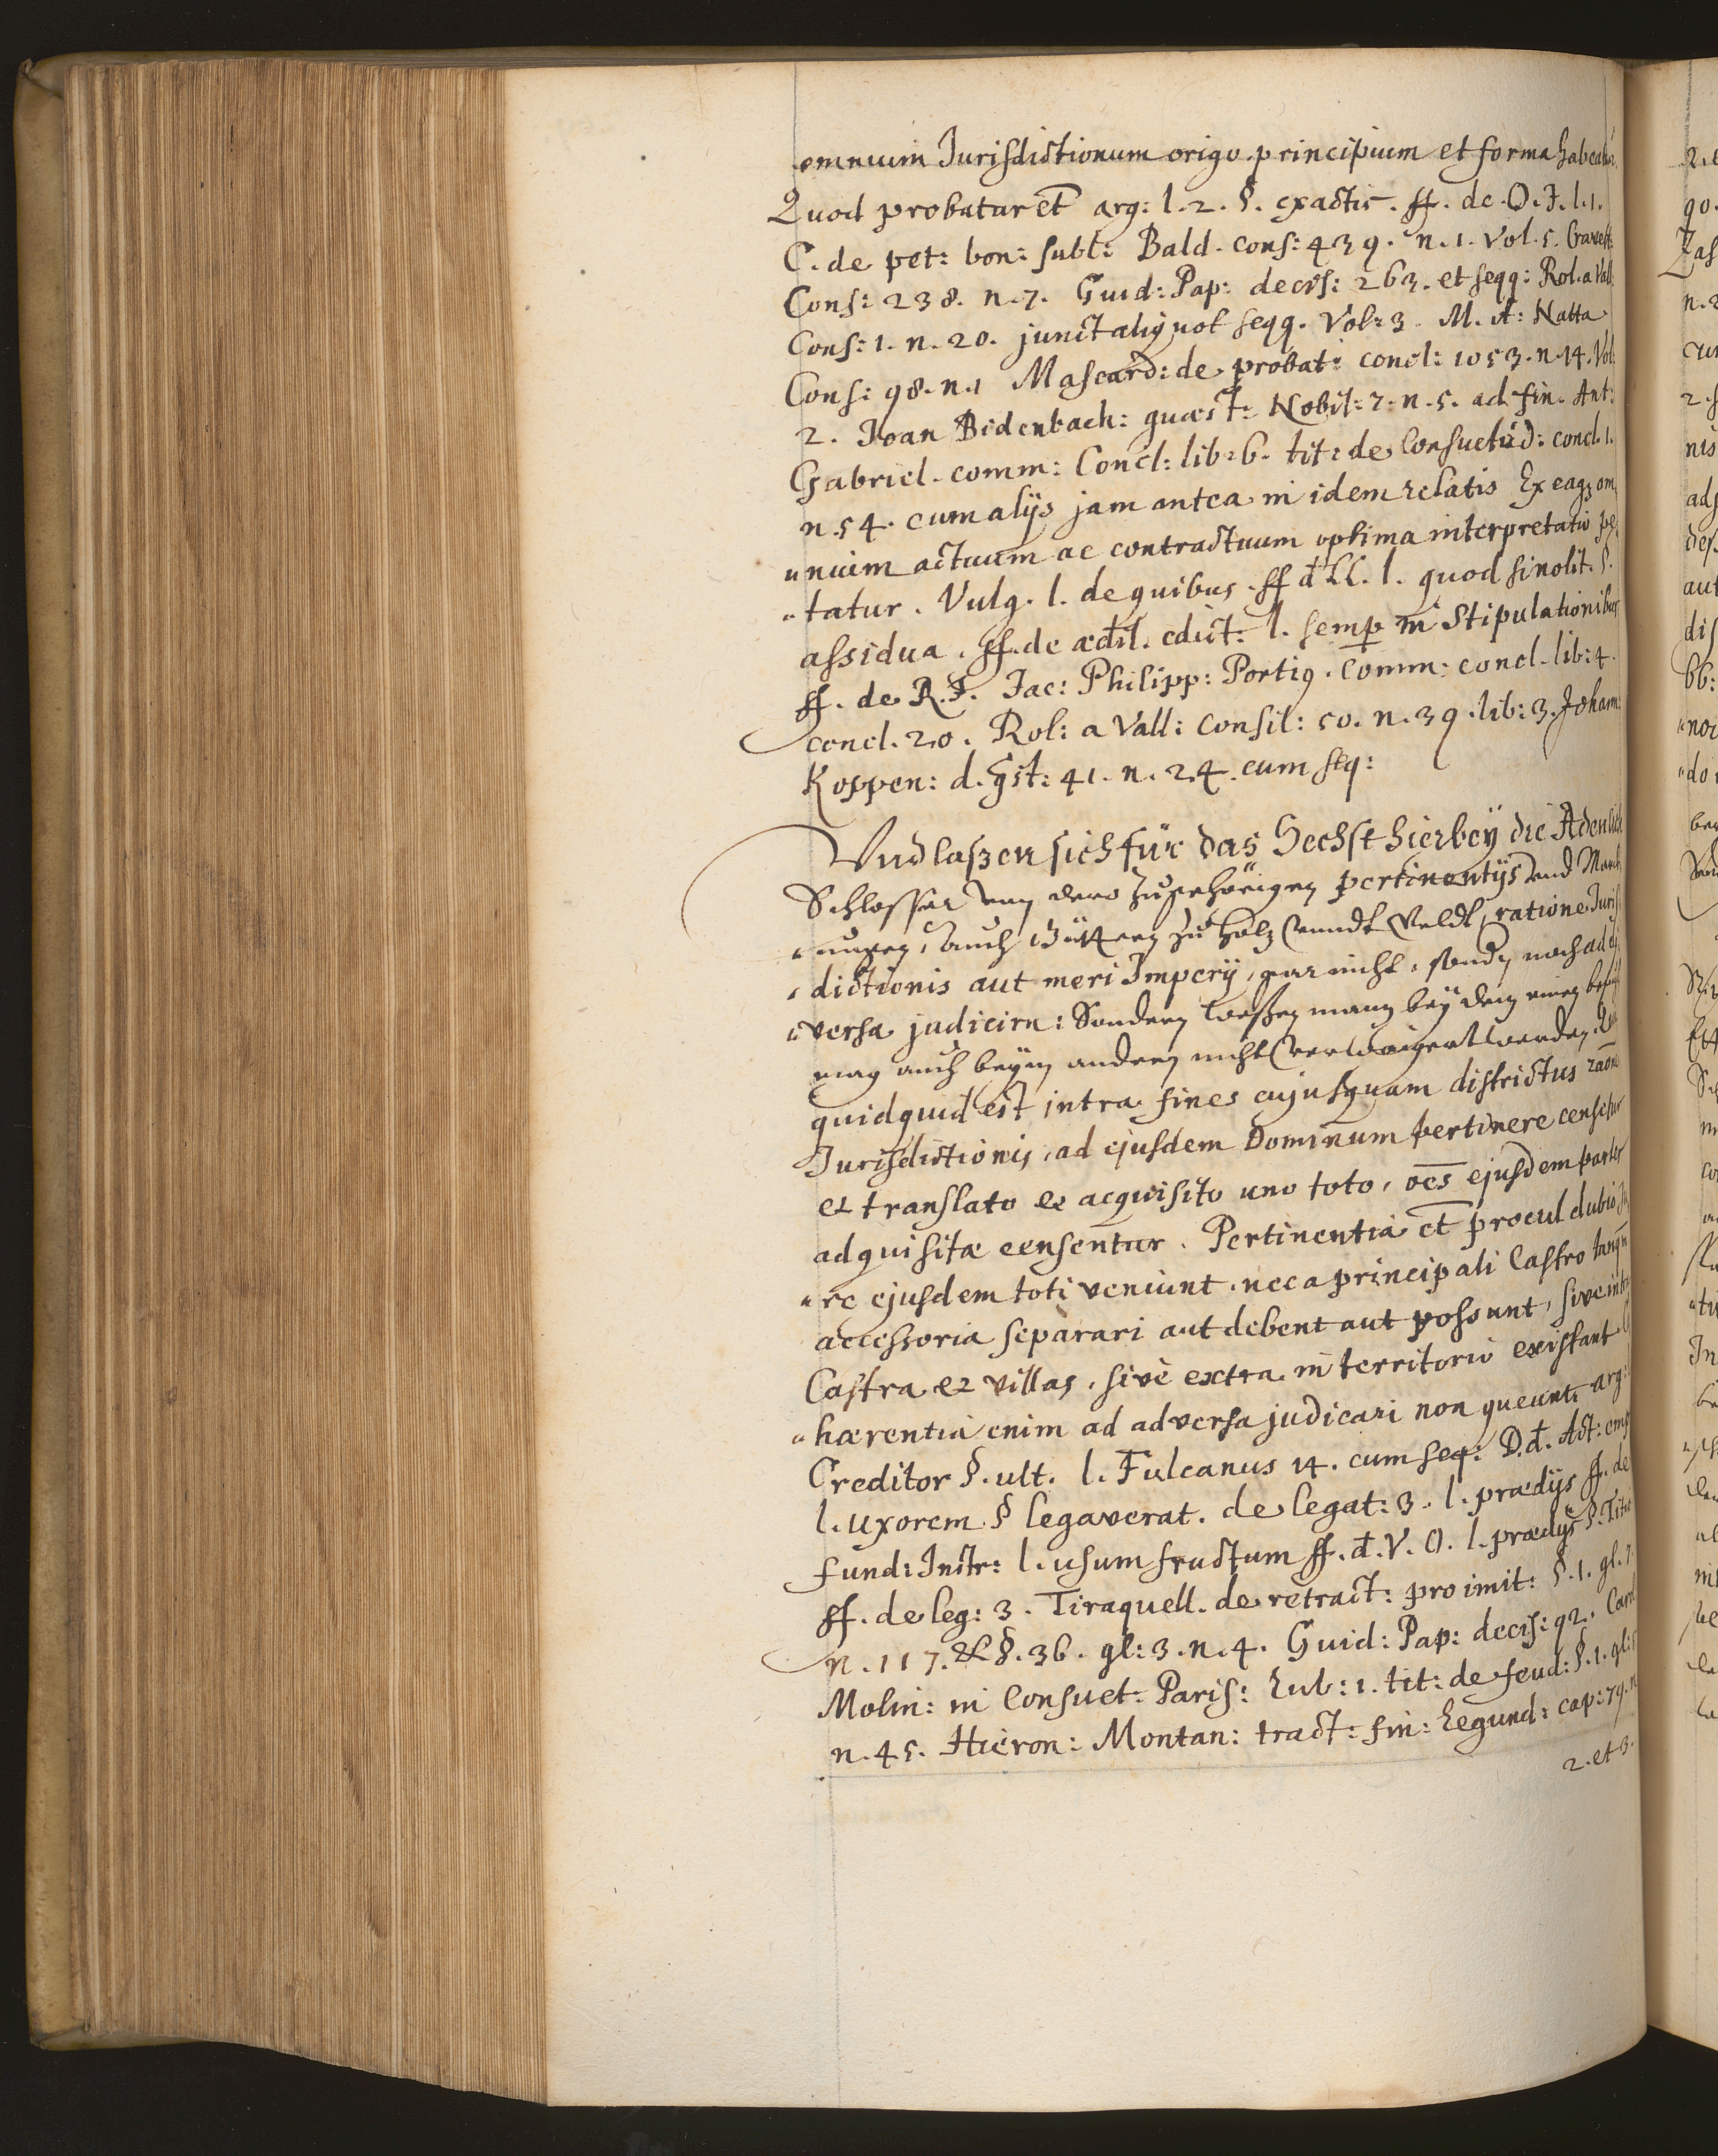 omnium Jurisdictionum origo principium et forma habeatur.
Quod probatur et arg: l. 2. §. exactis. ff. de O. J. l. 1.
C. de pet: bon: subl: Bald. cons: 439. n. 1. Vol. 5. Gravett:
Cons: 238. n. 7. Guid: Pap: decis: 263. et seqq: Rol. a Vall:
Cons: 1. n. 20. junct aliquot seqq. Vol: 3. M. A: Natta
Cons: 98. n. 1 Mascard: de probat: concl: 1053. n. 14. Vol:
2. Joan Bidenbach: quæst: Nobil: 7. n. 5. ad fin. Ant:
Gabriel. comm: Concl: lib: 6. tit: de Consuetud: concl. 1.
n. 54. cum alijs jam antea in idem relatis Ex eaq3 om
nium actuum ac contractuum optima interpretatio pe
tatur. Vulg. l. de quibus. ff đ LL. l. quod si nolit. §.
assidua. ff. de ædil. edict: l. semp in Stipulationibus
ff. de R. J. Jac: Philipp: Porti9. Comm: concl. lib: 4.
concl. 20. Rol: a Vall: Consil: 50. n. 39. lib: 3. Johann:
Koppen: d. qst: 41. n. 24. cum seq:
Vnd laßen sich für das Sechst hierbey die Adenlich
Schlosser von dero zugehörigen pertinentijs vnd March
ungen, auch Güttern zu holz vnndt Veldt, ratione Juris
dictionis aut meri Imperij, gar nicht, sondern noch ad di
versa judicirn: Sondern weßen mann bey dem einen befugt
mag auch beym andern nicht verwaigert werden.
quidquid est intra fines cujusquam districtus raone
Jurisdictionis, ad ejusdem Dominum pertinere censetur
et translato et acquisito uno toto, oes ejusdem partes
adquisitæ censentur. Pertinentia et procul dubio Ju
re ejusdem toti veniunt, nec a principali Castro tanqm
accessoria separari aut debent aut possunt, sive intra
Castra et villas, sive extra in territorio existant
hærentia enim ad adversa judicari non queunt, arg:
Creditor §. ult. l. Fulcanus 14. cum seq: D. đ. Act: emp
l. uxorem § legaverat. de legat: 3. l. prædijs ff. de
fund: Instr: l. usumfructum ff. đ. V. O. l. prædijs §. Titio
ff. de leg: 3. Tiraquell. de retract: proximit: §. 1. gl. 7.
n. 117. et §. 36. gl: 3. n. 4. Guid: Pap: decis: 92. Carol
Molin: in Consuet: Paris: Rub: 1. tit: de feud: §. 1. gl: 5
n. 45. Hieron: Montan: tract: fin: Regund: cap: 79. n.
2. et 3.